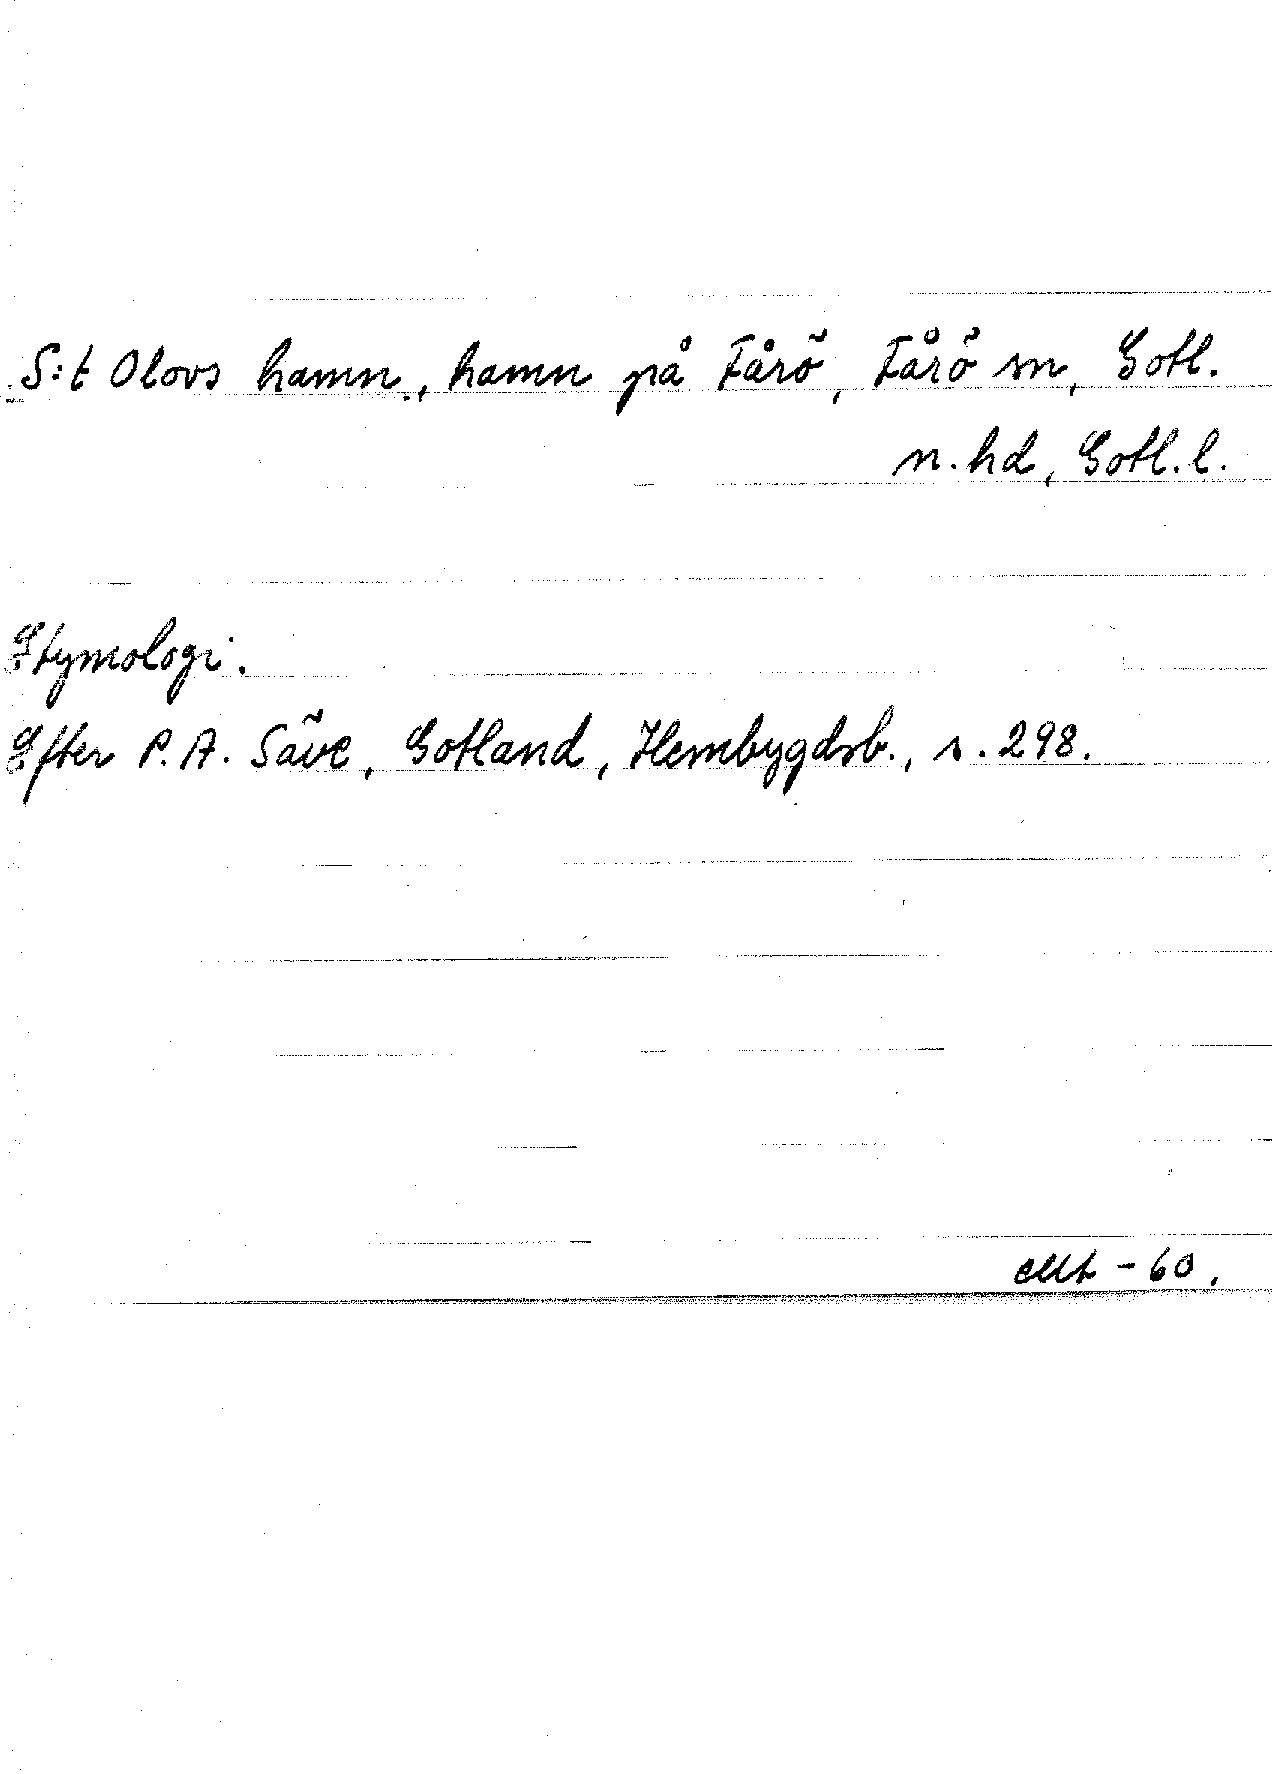 S:t Olovs hamn, hamn på Fårö, Fårö sn, Gotl.
n. hd, Gotl. l.
Etymologi.
Efter P. A. Säve, Gotland, Hembygdsb., s. 298.
- 60.